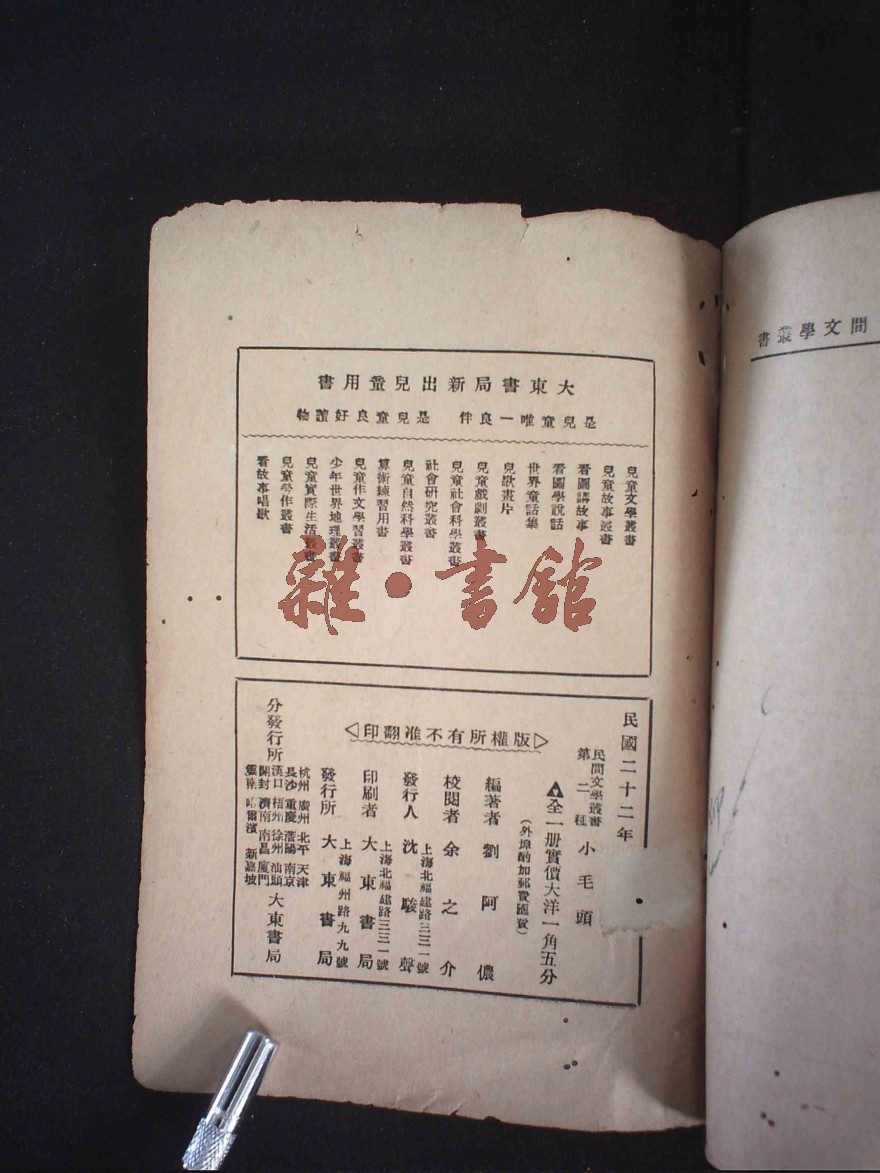 間文學叢書
大東書局新出兒童用書
是兒童唯一良伴　是兒童良好讀物
兒童文學叢書
兒童故事叢書
看圖講故事
看圖學說話
世界童話集
兒歌畫片
兒童戲劇叢書
兒童社會科學叢書
社會研究叢書
兒童自然科學叢書
算術練習用書
兒童作文學習叢書
少年世界地理叢書
兒童實際生活叢書
兒童勞作叢書
看故事唱歌
雜·書館
民國二十二年
民間文學叢書
第二種
小毛頭
▲全一册實價大洋一角五分
（外埠酌加郵費匯費）
◁版權所有不准翻印▷
編著者 劉阿儂
校閱者 余之介
上海北福建路三三一號
發行人 沈駿聲
上海北福建路三三一號
印刷者 大東書局
上海福州路九九號
發行所 大東書局
分發行所
杭州 廣州 北平 天津
長沙 重慶 瀋陽 南京
漢口 梧州 徐州 汕頭
開封 濟南 南昌 廈門
雲南 哈爾濱 新嘉坡
大東書局